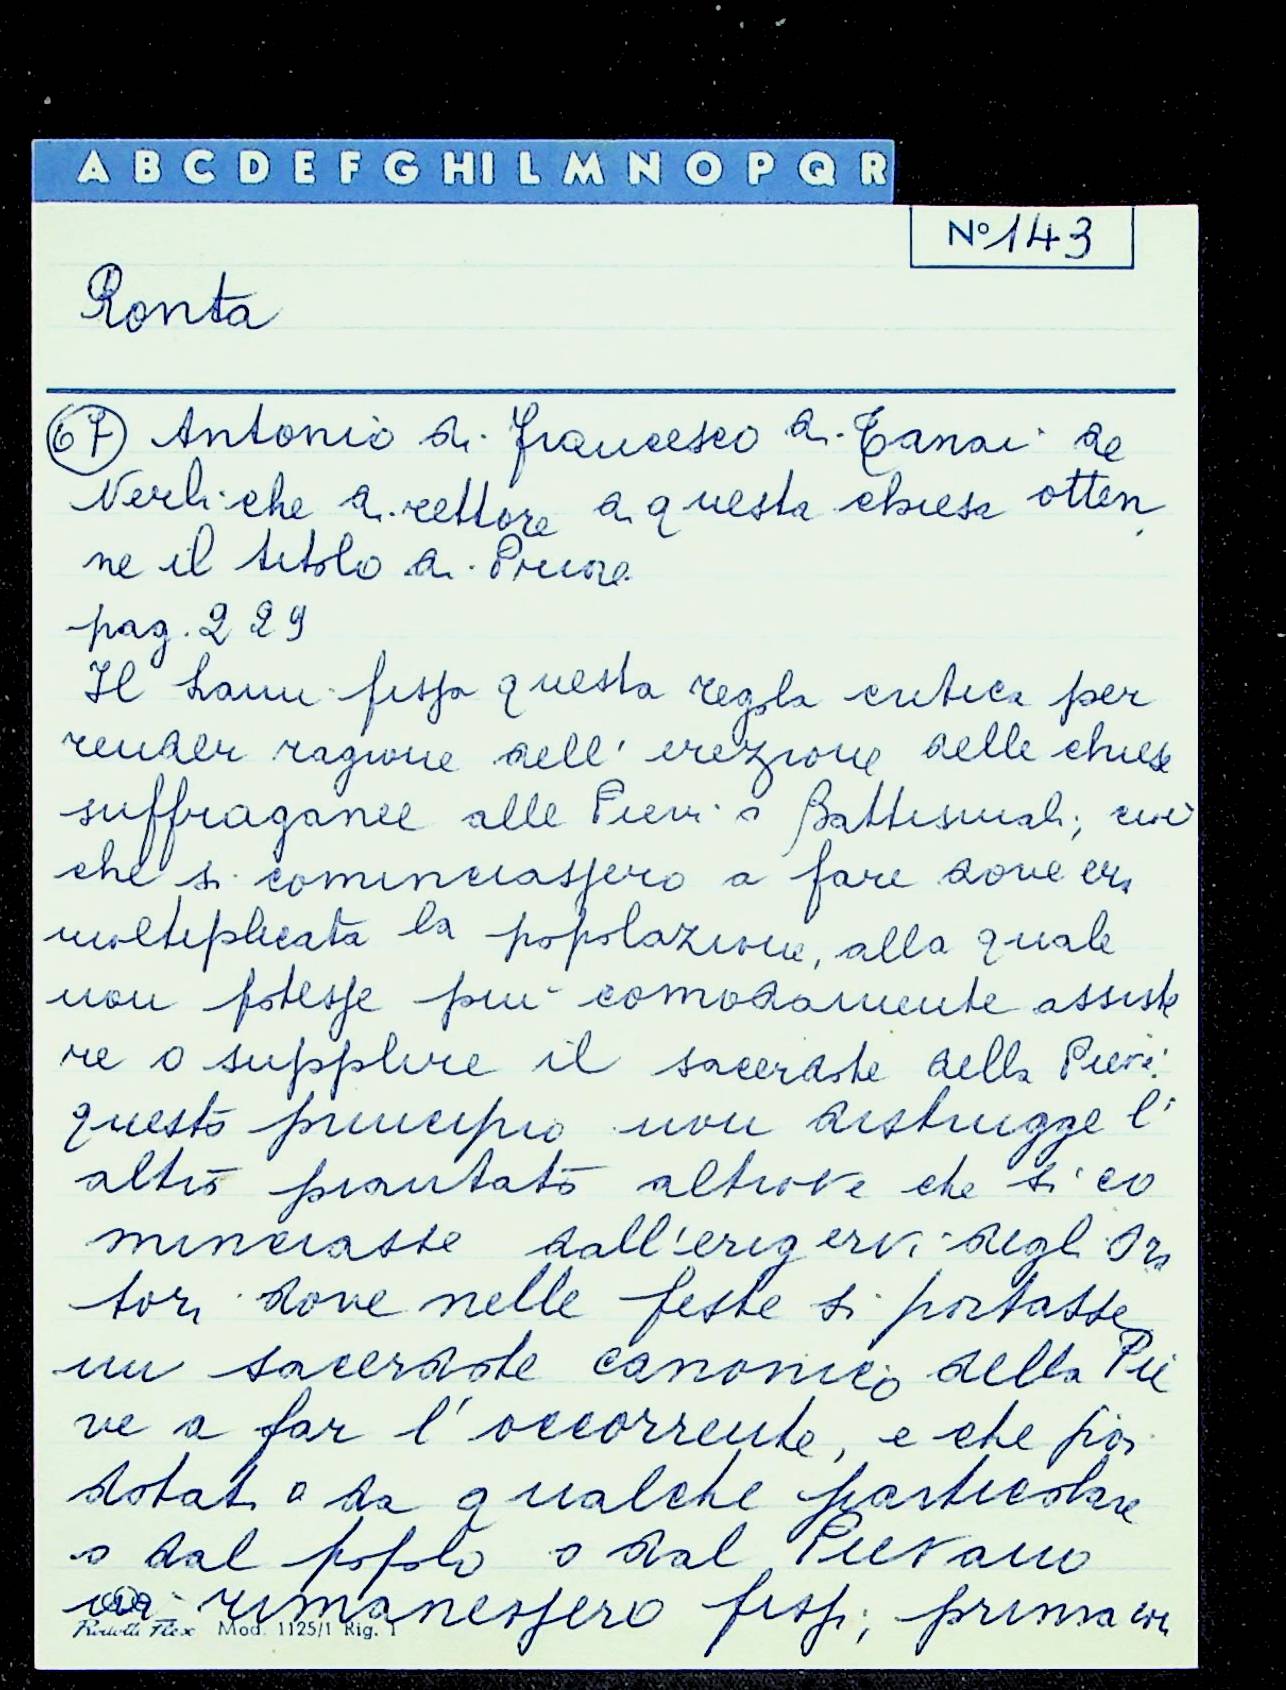 A B C D E F G H I L M N O P Q R
N° 143
Ronta
67 Antonio di Francesco di Tanai de
Nerli che di rettore di questa chiesa otten
ne il titolo di Priore
pag. 229
Il Lami fissa questa regola critica per
render ragione dell' erezione delle chiese
suffraganee alle Pievi o Battesimali; cioè
che si cominciassero a fare dove era
moltiplicata la popolazione, alla quale
non potesse più comodamente assiste
re o supplire il sacerdote della Pieve:
questo principio non distrugge l'
altro piantato altrove che si co
minciasse dall'erigervi degli Ora
tori dove nelle feste si portasse
un sacerdote canonico della Pie
ve a far l'occorrente, e che poi
dotati o da qualche particolare
o dal popolo o dal Pievano
vi rimanessero fissi; prima con
Mod. 1125/1 Rig. 1